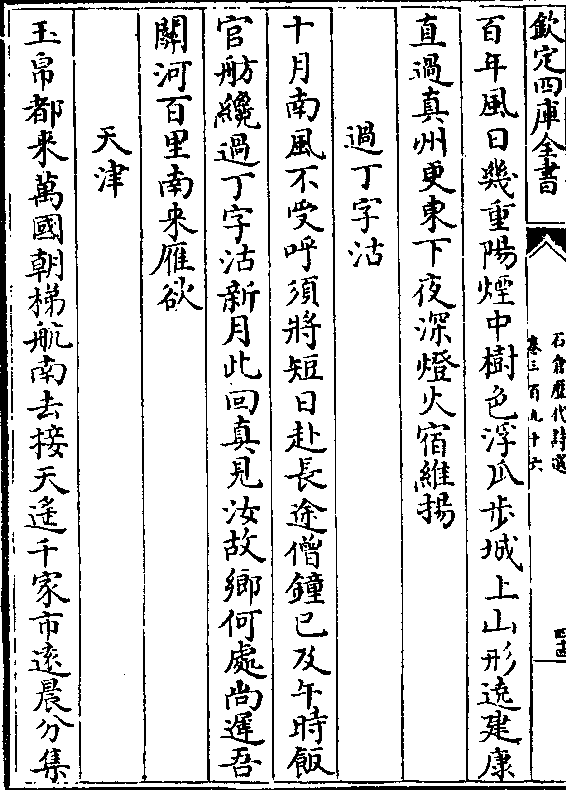 欽定四庫全書
石倉歷代詩選
卷三百九十六
百年風日幾重陽煙中樹色浮瓜歩城上山形遶建康
直過真州更東下夜深燈火宿維揚
過丁字沽
十月南風不受呼須將短日赴長途僧鐘已及午時飯
官舫纔過丁字沽新月此回真見汝故鄉何處尚遲吾
關河百里南来雁欲
天津
玉帛都来萬國朝梯航南去接天遙千家市遠晨分集